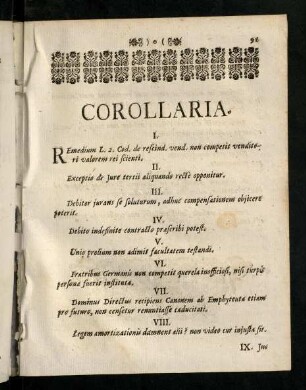 ) o (
COROLLARIA.
I.
REmedium L. 2. Cod. de rescind. vend. non competit vendito-
ri valorem rei scienti.
II.
Exceptio de Jure tertii aliquando rectè opponitur.
III.
Debitor jurans se soluturum, adhuc compensationem objicere
poterit.
IV.
Debito indefinitè contracto præscribi potest.
V.
Unio prolium non adimit facultatem testandi.
VI.
Fratribus Germanis non competit querela inofficiosi, nisi turpis
persona fuerit instituta.
VII.
Dominus Directus recipiens Canonem ab Emphyteuta etiam
pro futuro, non censetur renuntiasse caducitati.
VIII.
Legem amortizationis damnent alii? non video cur injusta sit.
IX. Jus